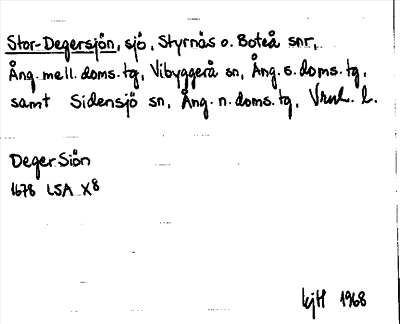 Stor-Degersjön, sjö, Styrnäs o. Boteå snr,
Ång. mell. doms. tg, Vibyggerå sn, Ång. s. doms. tg,
samt Sidensjö sn, Ång. n. doms. tg, Vnl. l.
Deger Siön
1678 LSA X8
kjH 1968